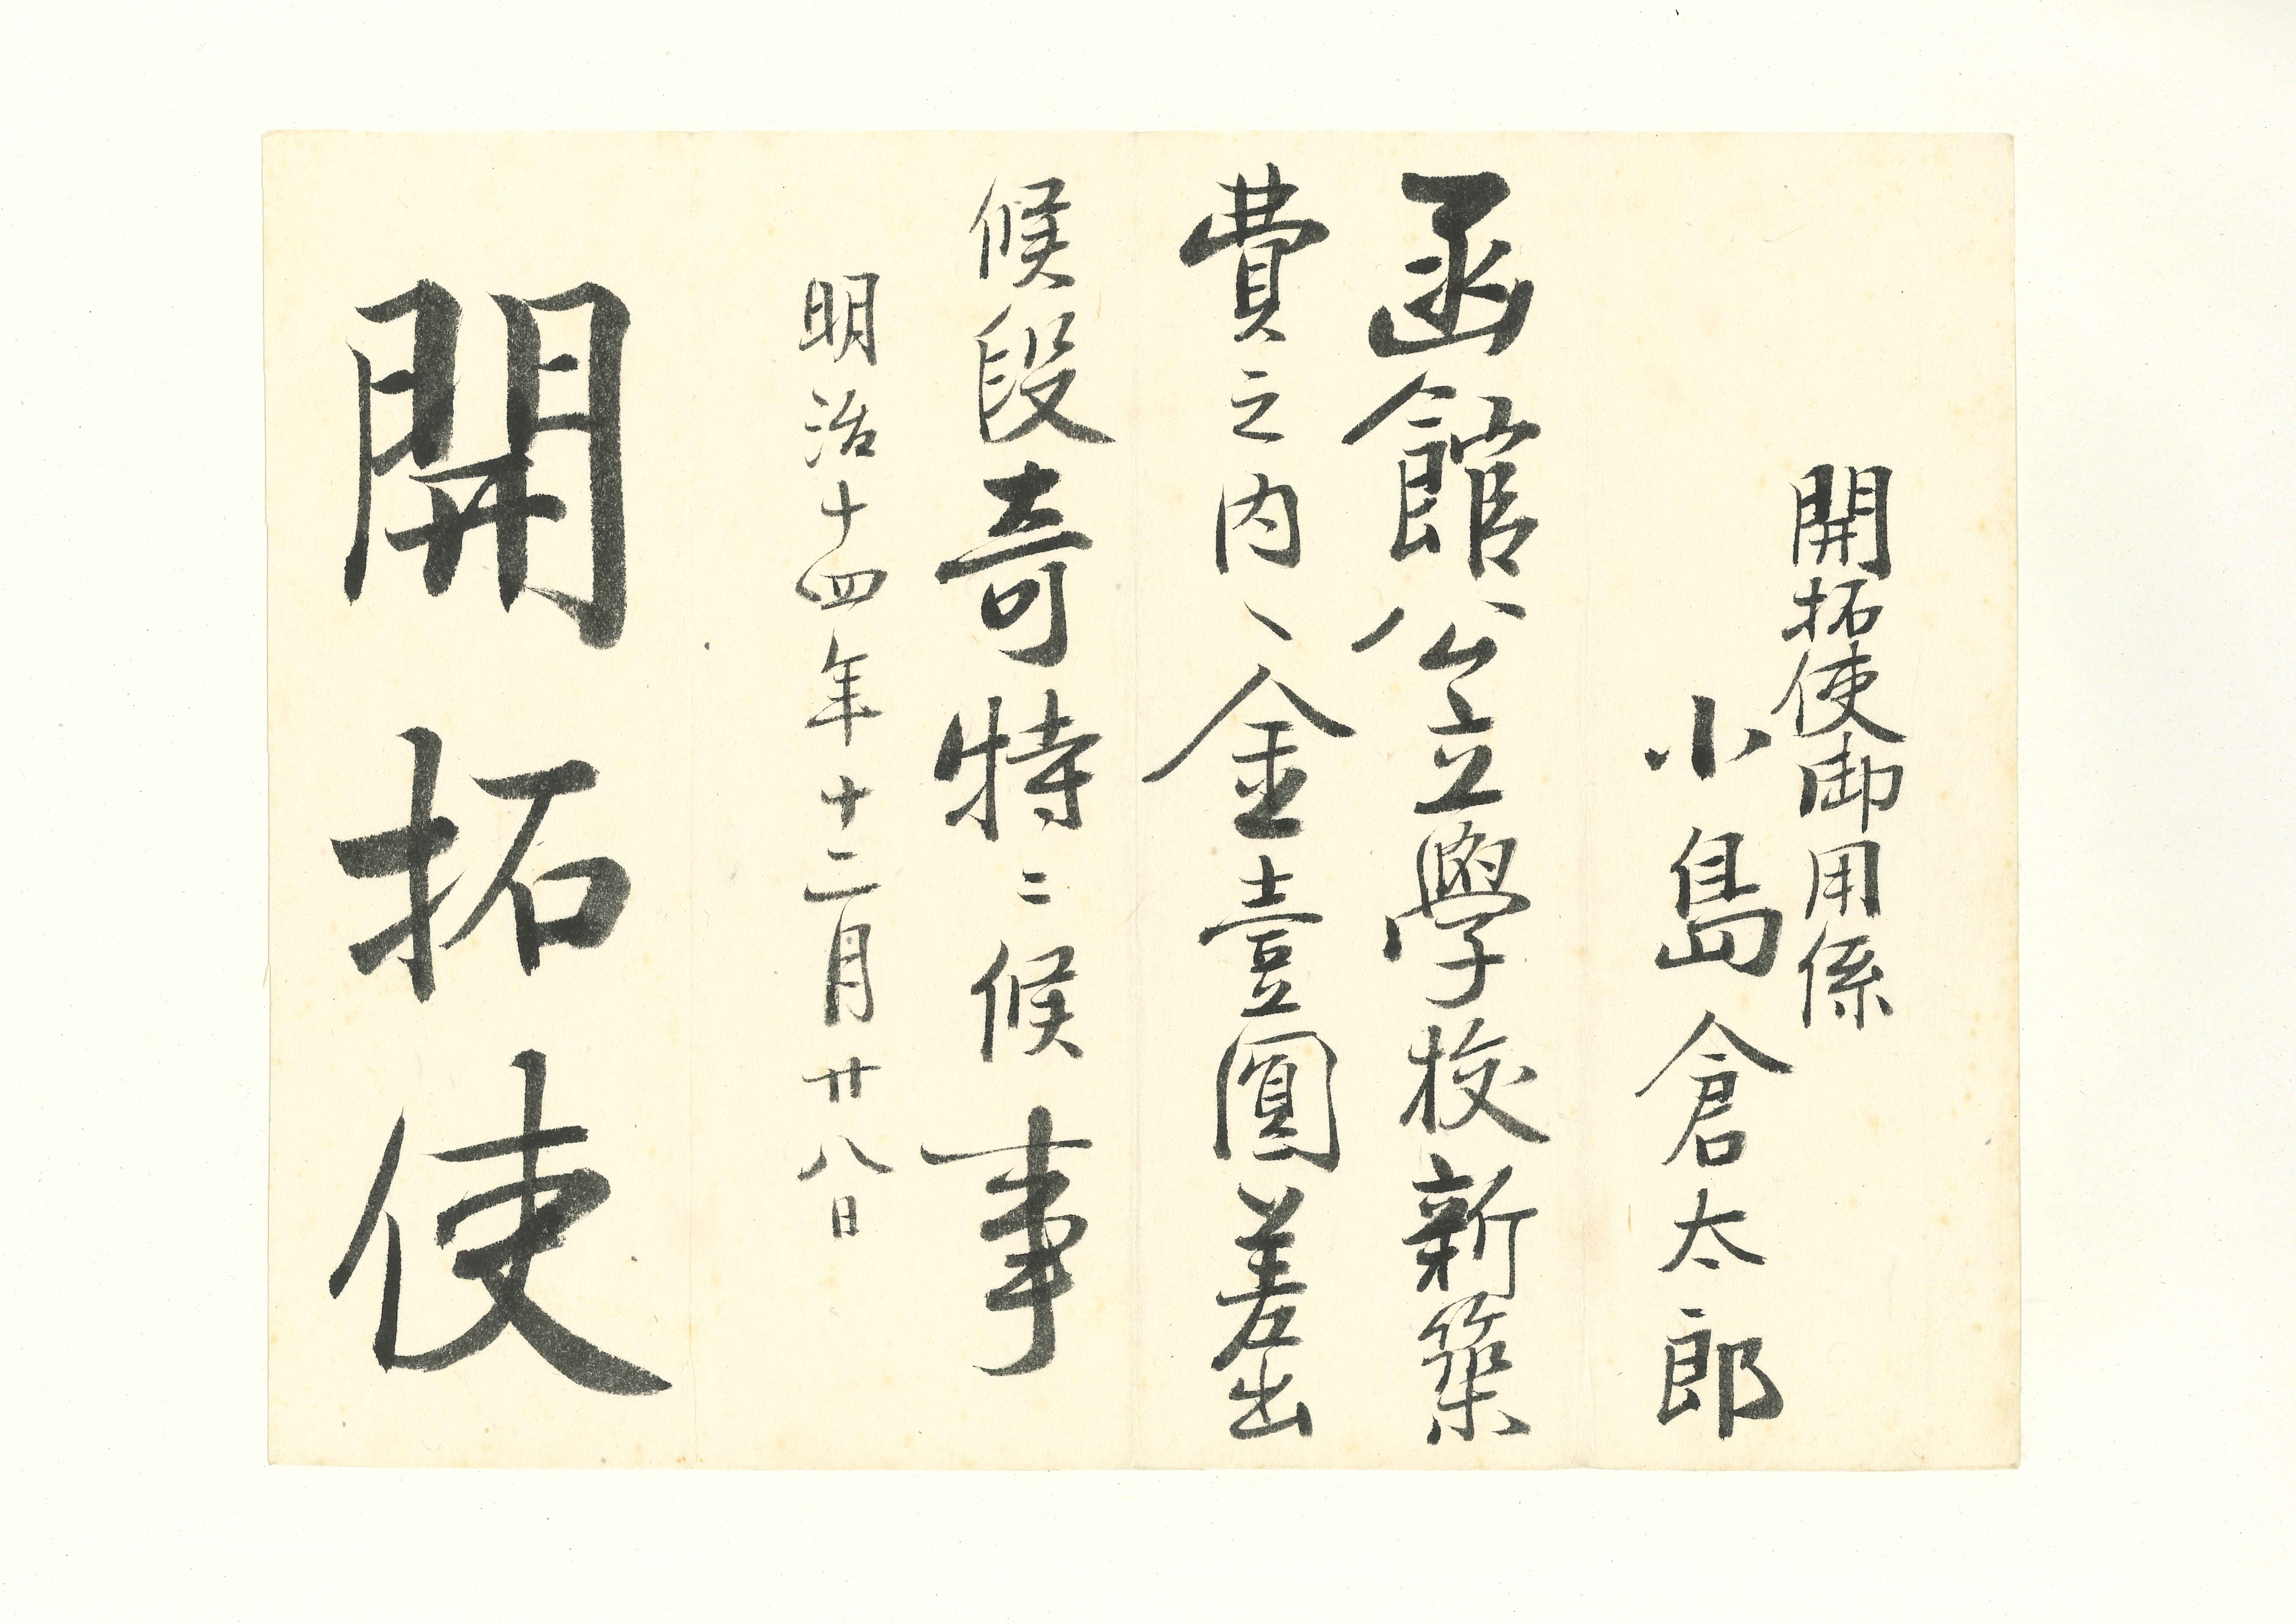 開拓使御用係
小島倉太郎
函館公立學校新築
費之内ヘ金壹圓差出
候段奇特ニ候事
明治十四年十二月廿八日
開拓使